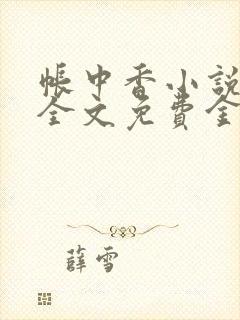 帐中香小说
全文免费全
薛雪